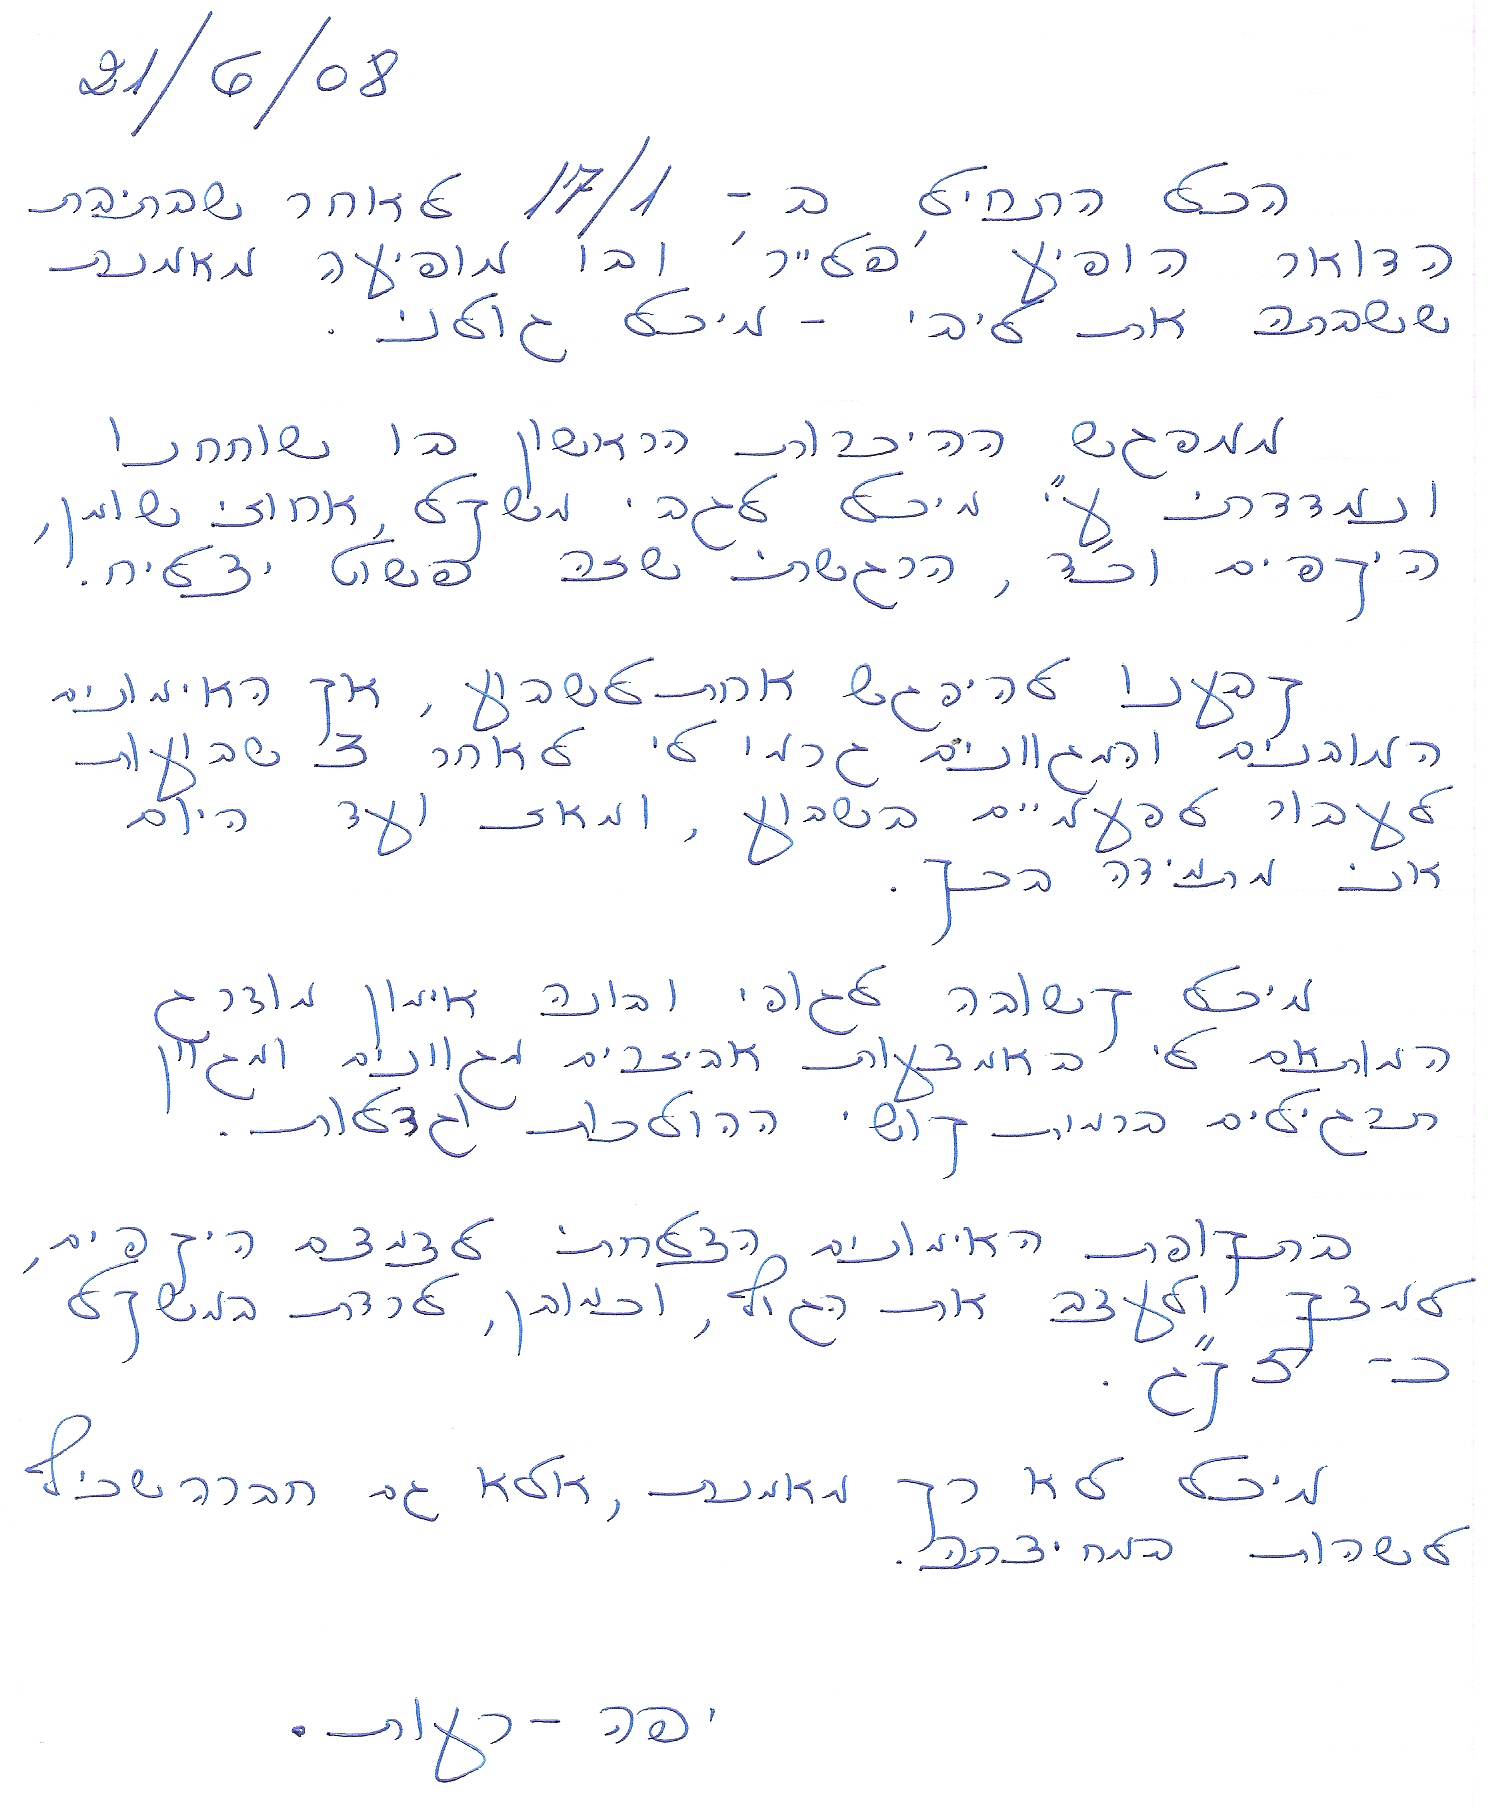 21/6/08
הכל התחיל ב - 17/1 לאחר שבתיבת
הדואר הופיע 'פלייר' ובו מופיעה מאמנת
ששבתה את ליבי - מיכל גולני.
ממפגש ההיכרות הראשון בו שוחחנו
ונמדדתי ע"י מיכל לגבי משקל, אחוזי שומן,
היקפים וכד', הרגשתי שזה פשוט יצליח.
קבענו להיפגש אחת לשבוע, אך האימונים
המובנים והמגוונים גרמו לי לאחר 3 שבועות
לעבור לפעמיים בשבוע, ומאז ועד היום
אני מתמידה בכך.
מיכל קשובה לגופי ובונה אימון מודרג
המותאם לי באמצעות אביזרים מגוונים ומגוון
תרגילים ברמות קושי ההולכות וגדלות.
בתקופת האימונים הצלחתי לצמצם היקפים,
למצק ולעצב את הגוף, וכמובן, לרדת במשקל
כ- 5 ק"ג.
מיכל לא רק מאמנת, אלא גם חברה שכיף
לשהות במחיצתה.
יפה - רעות.